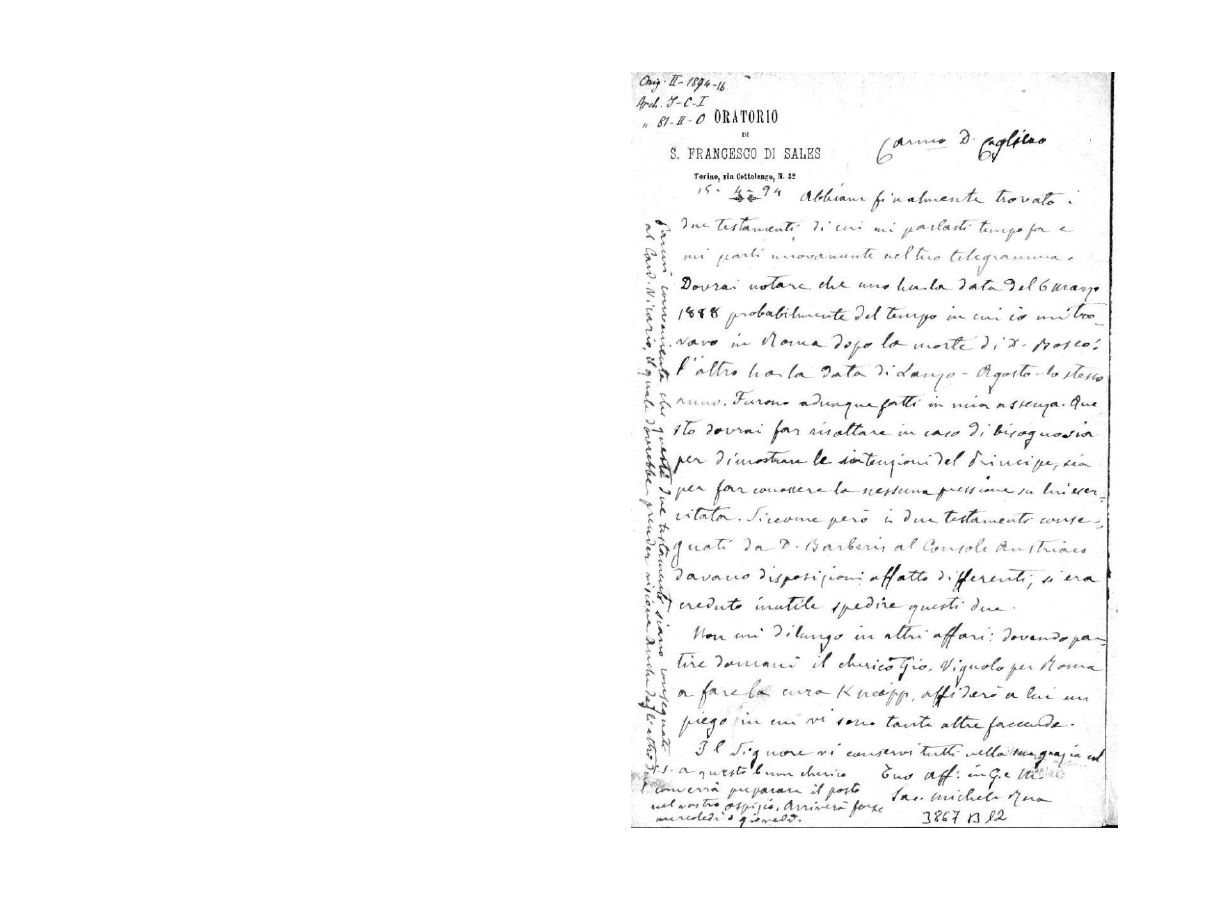 Orig. II-1894-16
Arch. S-C-I
" 81-II-0
ORATORIO
DI
S. FRANCESCO DI SALES
Torino, via Cottolengo, N. 32
15 - 4 - 94
Carmo D. Cagliero
Abbiam finalmente trovato i
due testamenti di cui mi parlasti tempo fa e
mi parli nuovamente nel tuo telegramma.
Dovrai notare che uno ha la data del 6 marzo
1888 probabilmente del tempo in cui io mi tro-
vavo in Roma dopo la morte di D. Bosco:
l'altro ha la data di Lanzo - Agosto - lo stesso
anno. Furono adunque fatti in mia assenza. Que
sto dovrai far risaltare in caso di bisogno sia
per dimostrare le intenzioni del Principe, sia
per far conoscere la nessuna pressione su lui eser-
citata. Siccome però i due testamenti conse-
gnati da D. Barberis al Console Austriaco
davano disposizioni affatto differenti, si era
creduto inutile spedire questi due.
Non mi dilungo in altri affari: dovendo par-
tire domani il cherico Gio. Vignolo per Roma
a fare la cura Kneipp, affiderò a lui un
piego in cui vi sono tante altre faccende.
Il Signore vi conservi tutti nella sua grazia col
Tuo aff. in G. e M.
Sac. Michele Rua
P.S. a questo buon cherico
converrà preparare il posto
nel nostro ospizio. Arriverà forse
mercoledì o giovedì.
3867 B 12
Parmi conveniente che questi due testamenti siano consegnati
al Card. Vicario, il quale dovrebbe prender visione anche degli altri due